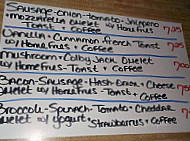 Sausage-Onion-Tomato-Jalapeno
+mozzarella Omelet w/Homefries
Toast + Coffee 7.95
Vanilla + Cinnamon French Toast
w/Homefries + Coffee 7.25
Mushroom + Colby Jack Omelet
w/Homefries-Toast + Coffee
Bacon-Sausage-Hash-Onion+Cheese
Omelet w/Homefries-Toast + Coffee
Broccoli-Spinach-Tomato+Cheddar
Omelet w/ yogurt + Strawberries + Coffee